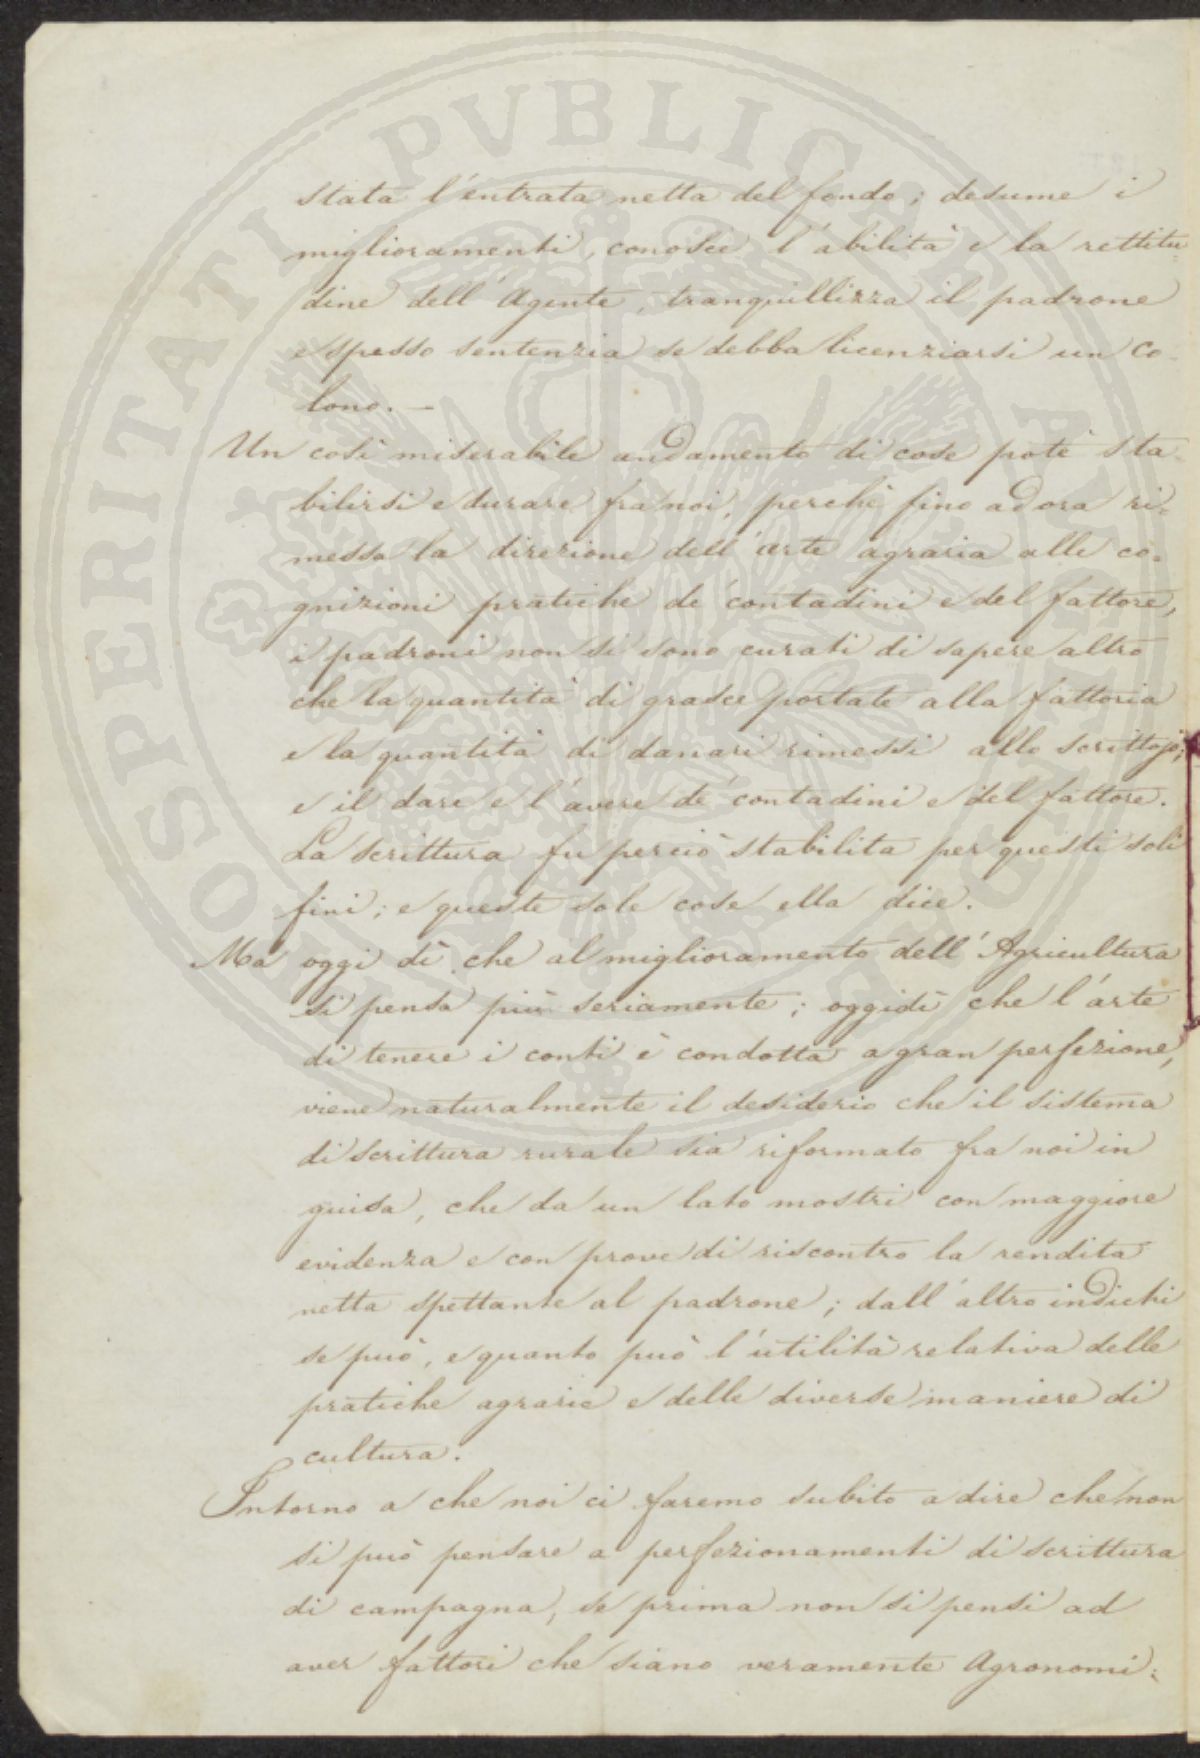 stata l'entrata netta del fondo; desume i
miglioramenti, conosce l'abilità e la rettitu=
dine dell'Agente, tranquillizza il padrone
e spesso sentenzia se debba licenziarsi un co-
lono. —
Un così miserabile andamento di cose potè sta-
bilirsi e durare fra noi, perchè fino ad ora ri=
messa la direzione dell'arte agraria alle co=
gnizioni pratiche de' contadini e del fattore,
i padroni non si sono curati di sapere altro
che la quantità di grasce portate alla fattoria
e la quantità di danari rimessi allo scrittojo;
e il dare e l'avere de' contadini e del fattore.
La scrittura fu perciò stabilita per questi soli
fini; e queste sole cose ella dice.
Ma oggi dì che al miglioramento dell'Agricultura
si pensa più seriamente; oggidì che l'arte
di tenere i conti è condotta a gran perfezione,
viene naturalmente il desiderio che il sistema
di scrittura rurale sia riformato fra noi in
guisa, che da un lato mostri con maggiore
evidenza e con prove di riscontro la rendita
netta spettante al padrone; dall'altro indichi
se può, e quanto può l'utilità relativa delle
pratiche agrarie e delle diverse maniere di
cultura.
Intorno a che noi ci faremo subito a dire che non
si può pensare a perfezionamenti di scrittura
di campagna, se prima non si pensi ad
aver fattori che siano veramente Agronomi;
PROSPERITATI PVBLICAE AVGENDAE